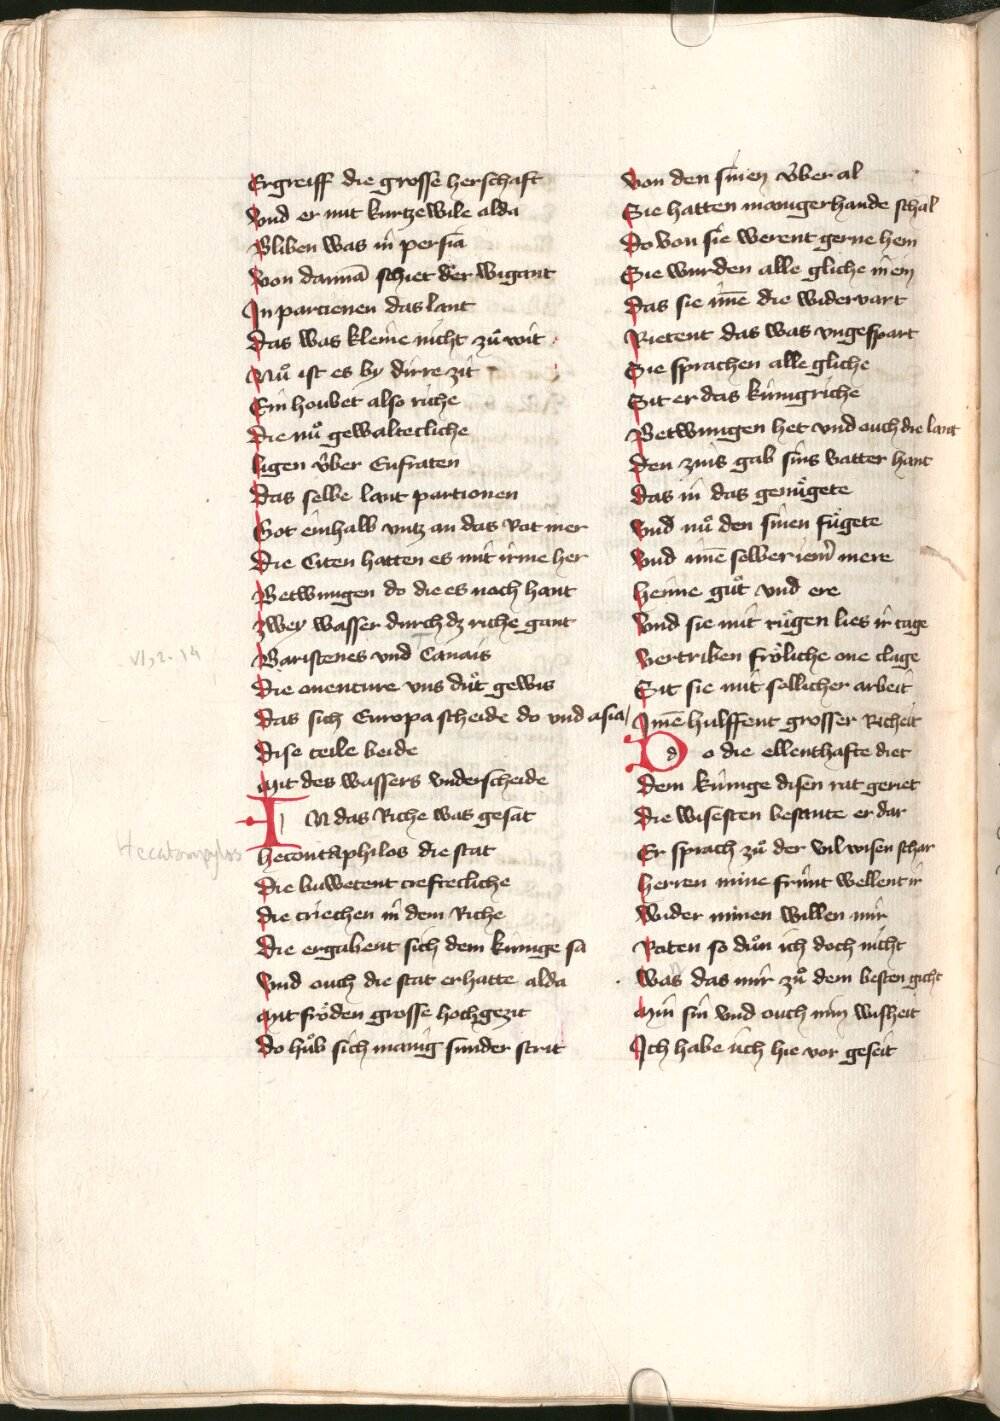 Ergreiff die grosse herschaft
Vnd er mit kurtzewile alda
Bliben was in persia
Von dannā schiet der wigant
In parcienen das lant
Das was kleine nicht zů wit
Nů ist es by dirre zit
Ein houbet also riche
Die nů gewaltecliche
ligen über Eufraten
Das selbe lant partionen
Got einhalb vntz an das Rot mer
Die Citen hatten es mit irme her
Betwungen do die es noch hant
Zwey wasser durch dz riche gant
Baristenes vnd Canais
Die ouenture vns důt gewis
Das sich Europa scheide do vnd asia
Dise teile beide
Mit des wassers vnderscheide
VI, 2. 14
IN das Riche was gesat
Hecatompylos
Hecontaphilos die stat
Die buwetent creftecliche
Die criechen in dem Riche
Die ergabent sich dem künige sa
Vnd ouch die stat er hatte alda
Mit fröden grosse hochgezit
Do hůb sich manig sunder strit
Von den sinen über al
Sie hatten manigerhande schal
Do von sie werent gerne hein
Sie wurden alle gliche in ein
Das sie ime die widervart
Rietent das was vngespart
Sie sprachen alle gliche
Sit er das künigriche
Betwungen het vnd ouch die lant
Den zins gab sins vatter hant
Das in das genůgete
Vnd nů den sinen fůgete
Vnd ime selber iem̄ mere
Heime gůt vnd ere
Vnd sie mit růgen lies ir tage
Vertriben fröliche one clage
Sit sie mit sollicher arbeit
Ime hulffent grosser Richeit
Do die ellenthafte diet
Dem künige disen rat geriet
Die wisesten besante er dar
Er sprach zů der vil wisen schar
Herren mine frünt wellent ir
Wider minen willen mir
Raten so důn ich doch nicht
Was das mir zů dem besten gicht
Min sin vnd ouch min wisheit
Ich habe üch hie vor geseit